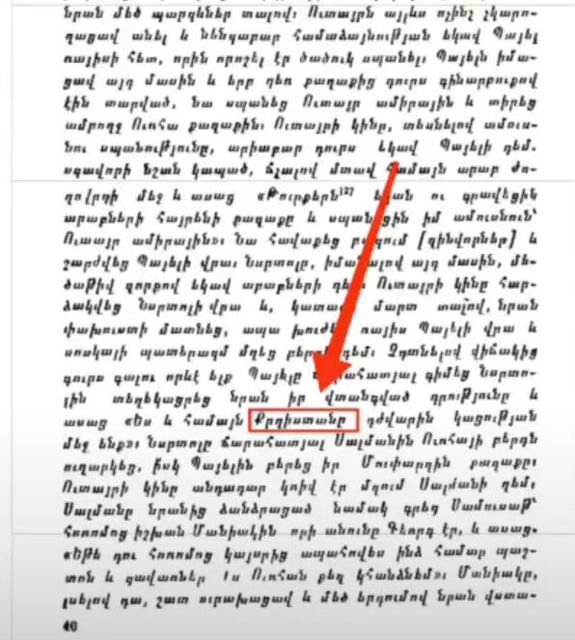 նրան մեծ պարգևներ տալով։ Ուտայրն այլևս ոչինչ չկարո-
ղացավ անել և նենգաբար համաձայնության եկավ Պալել
ռայիսի հետ, որին որոշել էր ծածուկ սպանել։ Պալելն իմա-
ցավ այդ մասին և երբ դեռ քաղաքից դուրս գինարբուքով
էին տարված, նա սպանեց Ուտայր ամիրային և տիրեց
ամբողջ Ուռհա քաղաքին։ Ուտայրի կինը, տեսնելով ամուս-
նու սպանությունը, արիաբար դուրս եկավ Պալելի դեմ.
սգավորի նշան կապած, ճչալով մտավ համայն արար ժո-
ղովրդի մեջ և ասաց «Թուրքերն¹²⁷ եկան ու գրավեցին
արաբների հայրենի քաղաքը և սպանեցին իմ ամուսնուն՝
Ուտայր ամիրային»։ Նա հավաքեց [զինվորներ] և
շարժվեց Պալելի վրա։ Նսրտոլը, իմանալով այդ մասին, մե-
ծաթիվ զորքով եկավ արաբների դեմ։ Ուտայրի կինը հար-
ձակվեց Նսրտոլի վրա և, մարտ տալով, նրան
փախուստի մատնեց, ապա ռայիս Պալելի վրա և
սոսկալի պատերազմ մղեց դեմ։ Չգտնելով վիճակից
դուրս գալու որևէ ելք Պալելը ճարահատյալ գիմեց Նսրտո-
լին տեղեկացրեց նրան իր վտանգված դրությունը և
ասաց «Ես և համայն Քրդիստանը դժվարին կացության
մեջ ենք»։ Նսրտոլը ճարահատյալ Սալմանին Ուռհայի բերդն
ուղարկեց, իսկ Պալելին բերեց իր Մուփարղին քաղաքը։
Ուտայրի կինը անդադար կռիվ էր մղում Սալմանի դեմ,
Սալմանը նրանից ձանձրացած նամակ գրեց Սամուսաթ՝
հոռոմոց իշխան Մանիակին որի անունը Գեորգ էր, և ասաց.
«Եթե դու հոռոմոց կայսրից ապահովես ինձ համար պաշ-
տոն և գավառներ ես Ուռհան քեզ կհանձնեմ»։ Մանիակը,
լսելով դա, շատ ուրախացավ և մեծ երդումով նրան վստա-
40